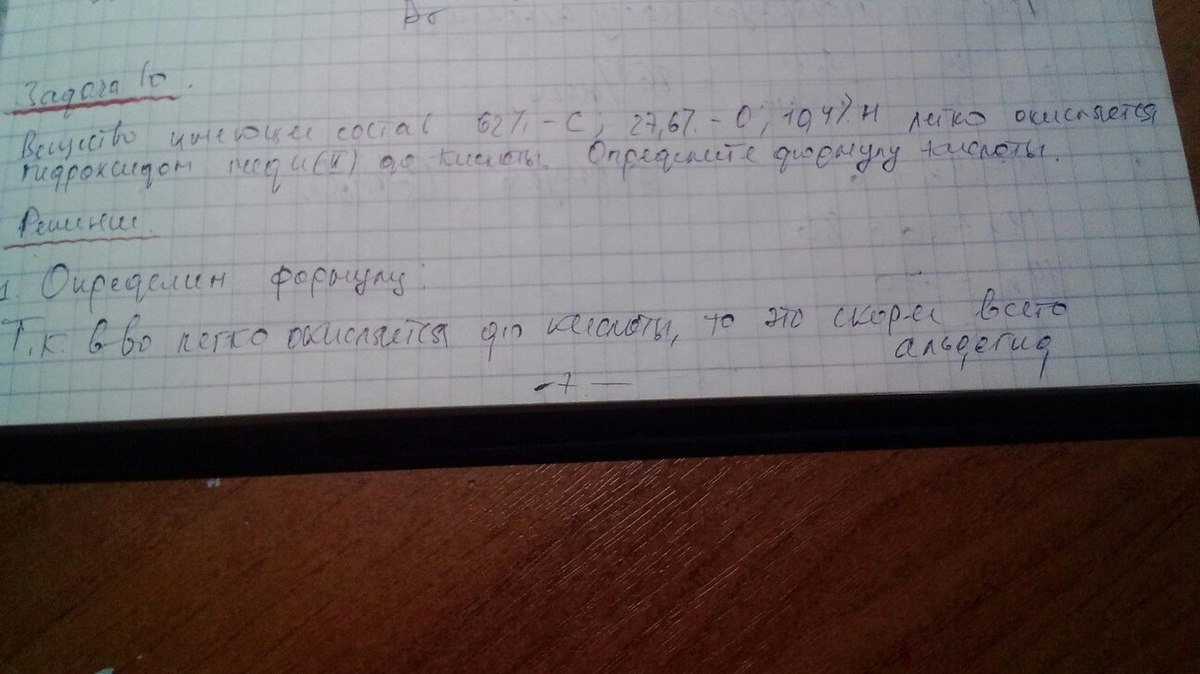 Задача 10.
Вещество имеющее состав 62% - C; 27,6% - O; 10,4% H легко окисляется
гидроксидом меди(II) до кислоты. Определите формулу кислоты.
Решение.
1. Определим формулу:
Т.к. в-во легко окисляется до кислоты, то это скорее всего
альдегид
- 7 -